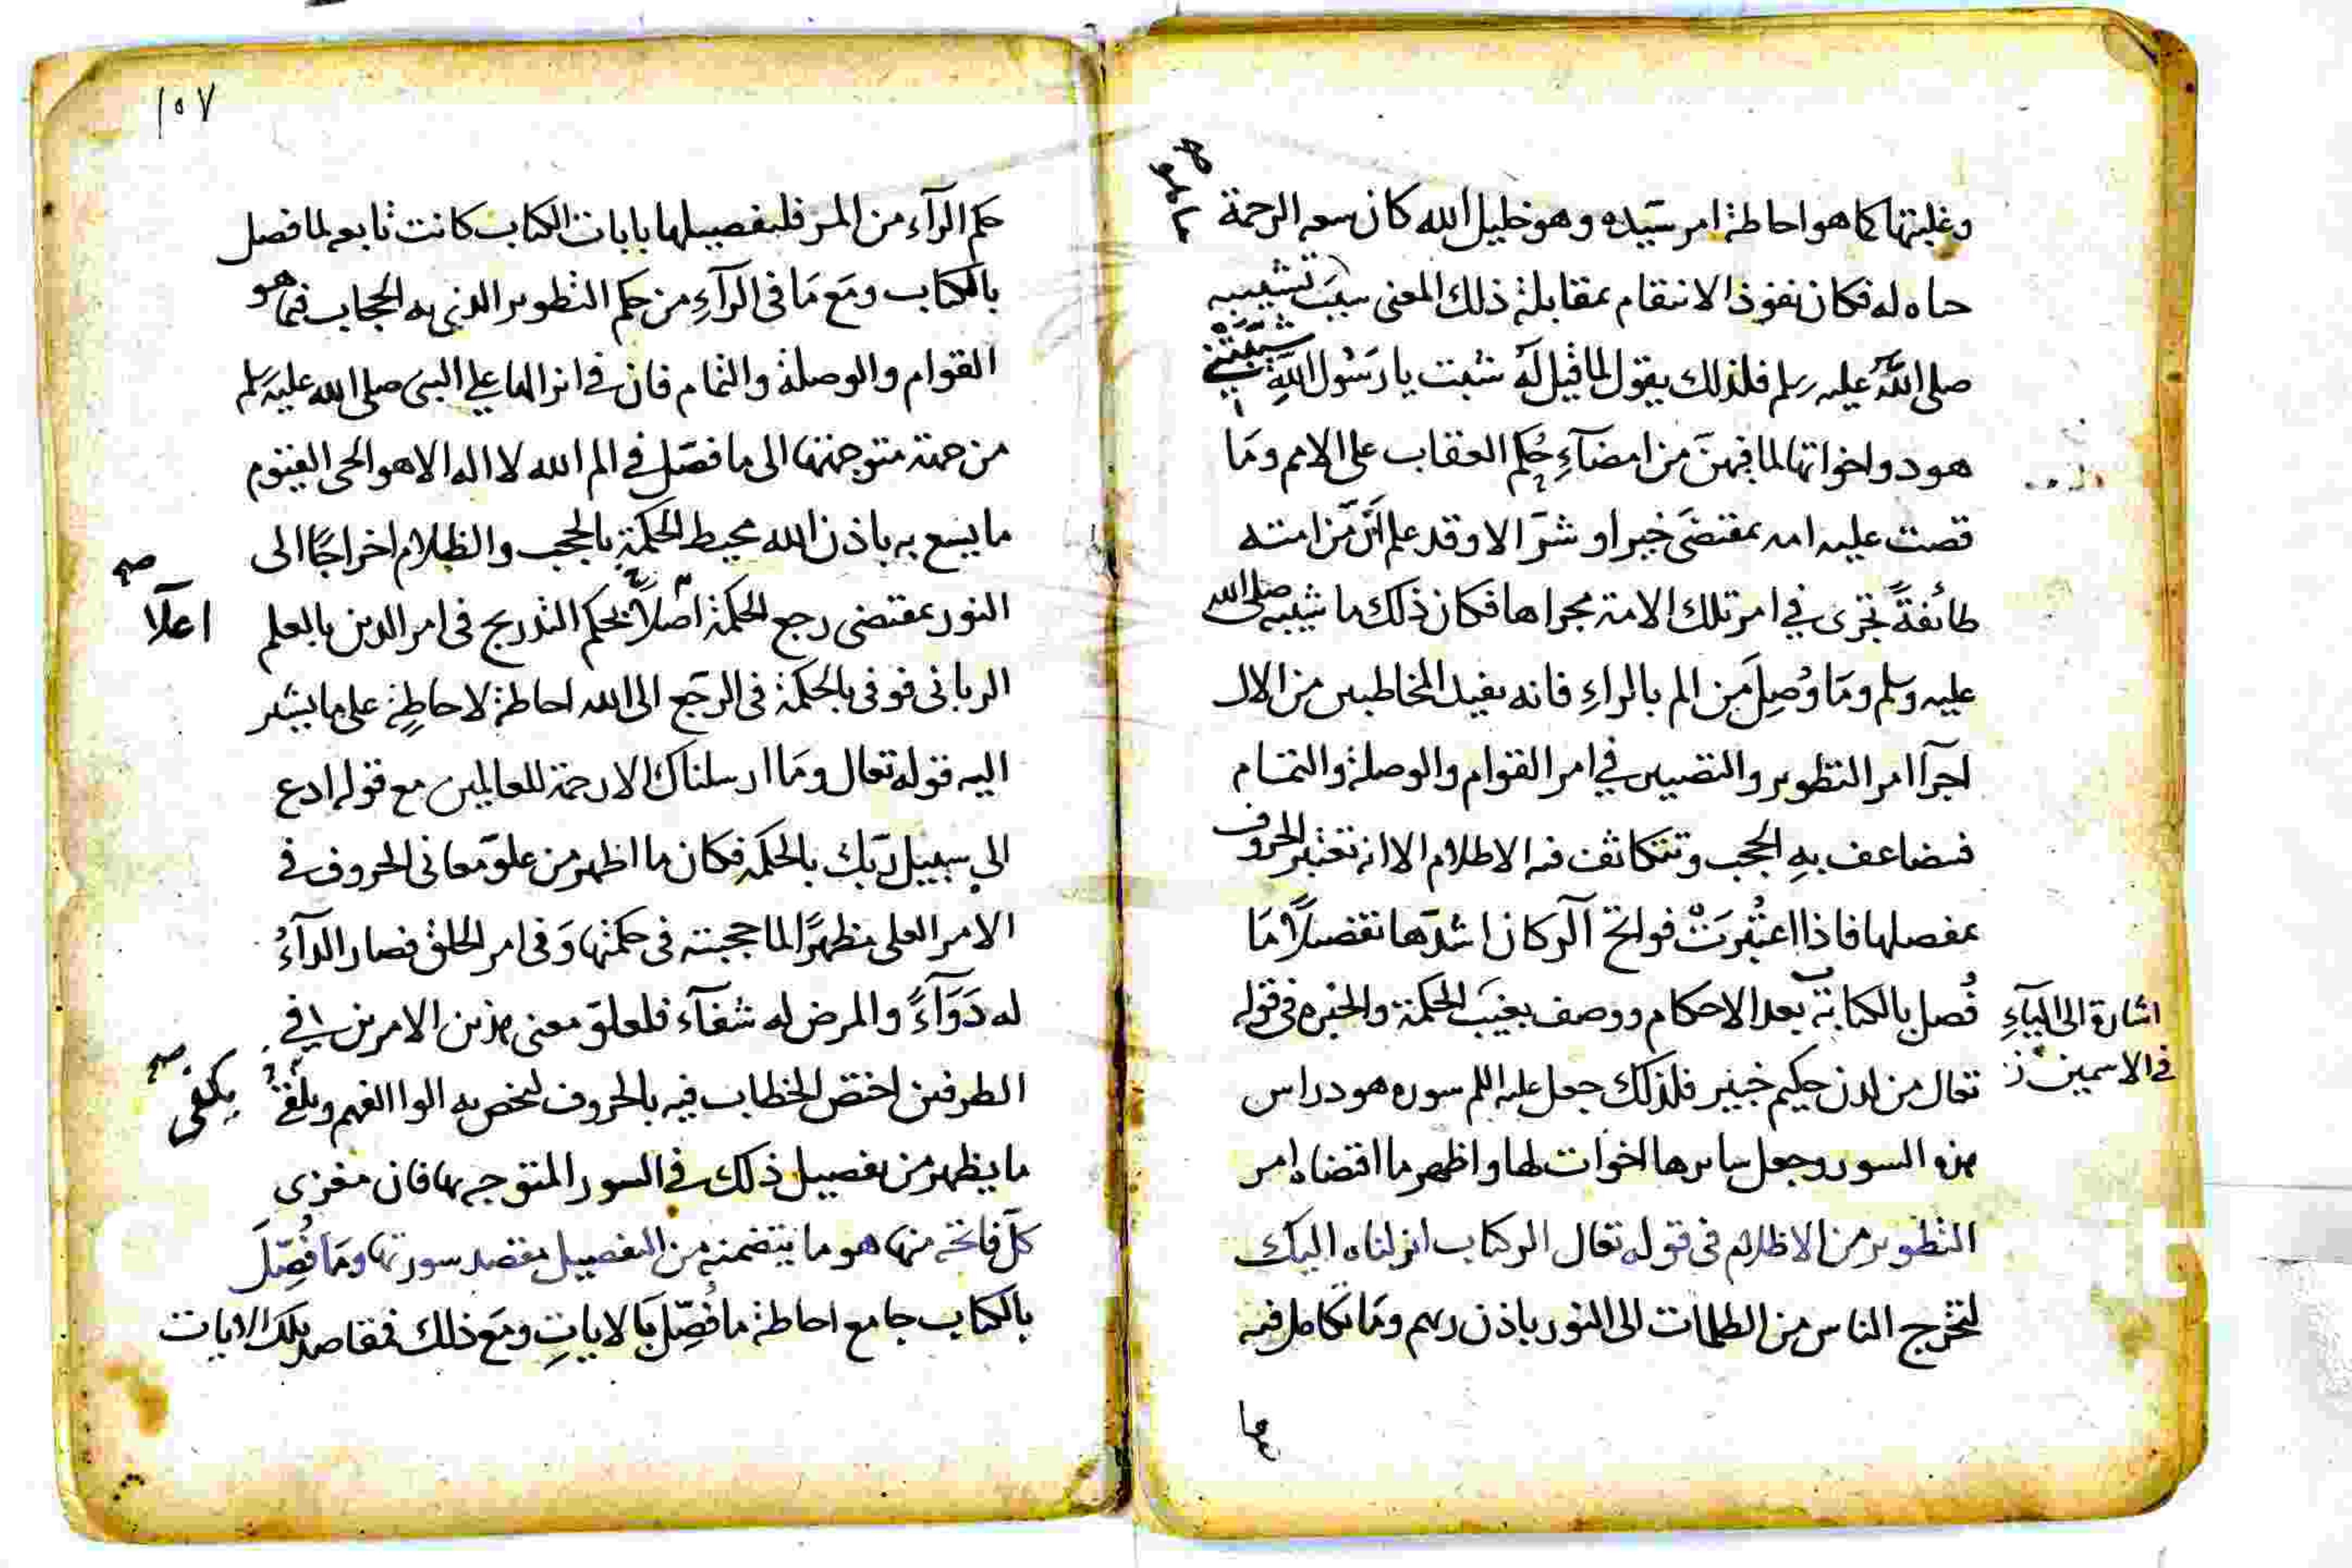 وغلبتها كما هو احاطة امر سيّده وهو خليل الله كان سعه الرحمة
حاه له فكان نفوذ الانتقام بمقابلة ذلك المعنى سبَبَ تشييبه
صلى اللّه عليه وسلم فلذلك يقول لما قيل لهُ شبت يا رَسُول اللّهِ شيّبَتْني
هود واخواتها لما فيهنّ من امضآءِ حُكم العقاب على الامم ومَا
قصت عليه امه بمقتضَى خير او شرّ الا وقد علم انّ من امته
طائفةً تجرى في امر تلك الامة مجراها فكان ذلك ما شيبه صلى الله
عليه وسلم ومَا وُصِلَ من الم بالراءِ فانه يفيد المخاطبين من الال
اجرآ امر التطوير والتصيير في امر القوام والوصلة والتمام
فىضاعف بهِ الحجب وتتكاثف فيه الاظلام الا انه تعتبر الحروف
بمفصلها فاذا اعتُبرَتْ فواتح آلر كان اشدّها تفصيلاً مَا
فُصل بالكتابة بعد الاحكام ووصف بغيَب الحكمة والخبره فى قوله
اشارة الى اليآءِ
فى الاسمين ز
تعالى من لدن حكيم خبير فلذلك جعل عليه السلم سوره هود راس
هذه السور وجعل سايرها اخوات لها واظهر ما اقتضاه امر
التطوير من الاظلام فى قوله تعالى الر كتاب انزلناه اليك
لتخرج الناس من الظلمات الى النور باذن ربهم ومَا تكامل فيه
١٥٧
حكم الرآء من المر فلتفصيلها بايات الكتاب كانت تابعه لما فصل
بالكتاب ومَع مَا فى الرآءِ من حكم التطوير الذى به الحجاب فما هو
القوام والوصلة والتمام فان في انزالها على النبى صلى الله عليه وسلم
من حمة متوجهتها الى ما فصّل في الم الله لا اله الا هو الحى القيوم
ما يسع به باذن الله محيط الحكمة بالحجب والظلام اخراجًا الى
النور بمقتضى رجع الحكمة اصلاً بحكم التدريج فى امر الدين بالعلم
اعلآا صح
الربانى فوفى بالحكمة فى الرجَع الى الله احاطة لاحاطِةِ على ما يشير
اليه قوله تعالى ومَا ارسلناك الا رحمة للعالمين مع قوله ادع
الى سبيل ربّك بالحكمة فكان ما اظهر من علوّ معانى الحروف في
الامر العلى مظهرًا لما حجبته فى حكمتها وَفى امر الخلق فصار الدآءُ
له دَوَآءً والمرض له شفآء فلعلوّ معنى هذين الامرين فى
الطرفين اختصّ الخطاب فيه بالحروف ليخص به الوا الفهم ويلقَى
يكفى صح
ما يظهر من تفصيل ذلك في السور المتوجه بها فان مغزى
كلّ فاتحة منها هو ما يتضمنه من التفصيل مقصد سورتها ومَا فُصِّلَ
بالكتاب جامع احاطة ما فُصِّل بالاياتِ ومَع ذلك فمقاصد تلك الايات